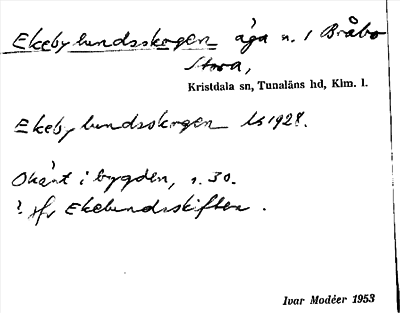 Ekebylundsskogen äga n. 1 Bråbo
Stora,
Kristdala sn, Tunaläns hd, Klm. l.
Ekebylundsskogen Ls 1928.
Okänt i bygden, s. 30.
? jfr Ekelundsskiften.
Ivar Modéer 1953